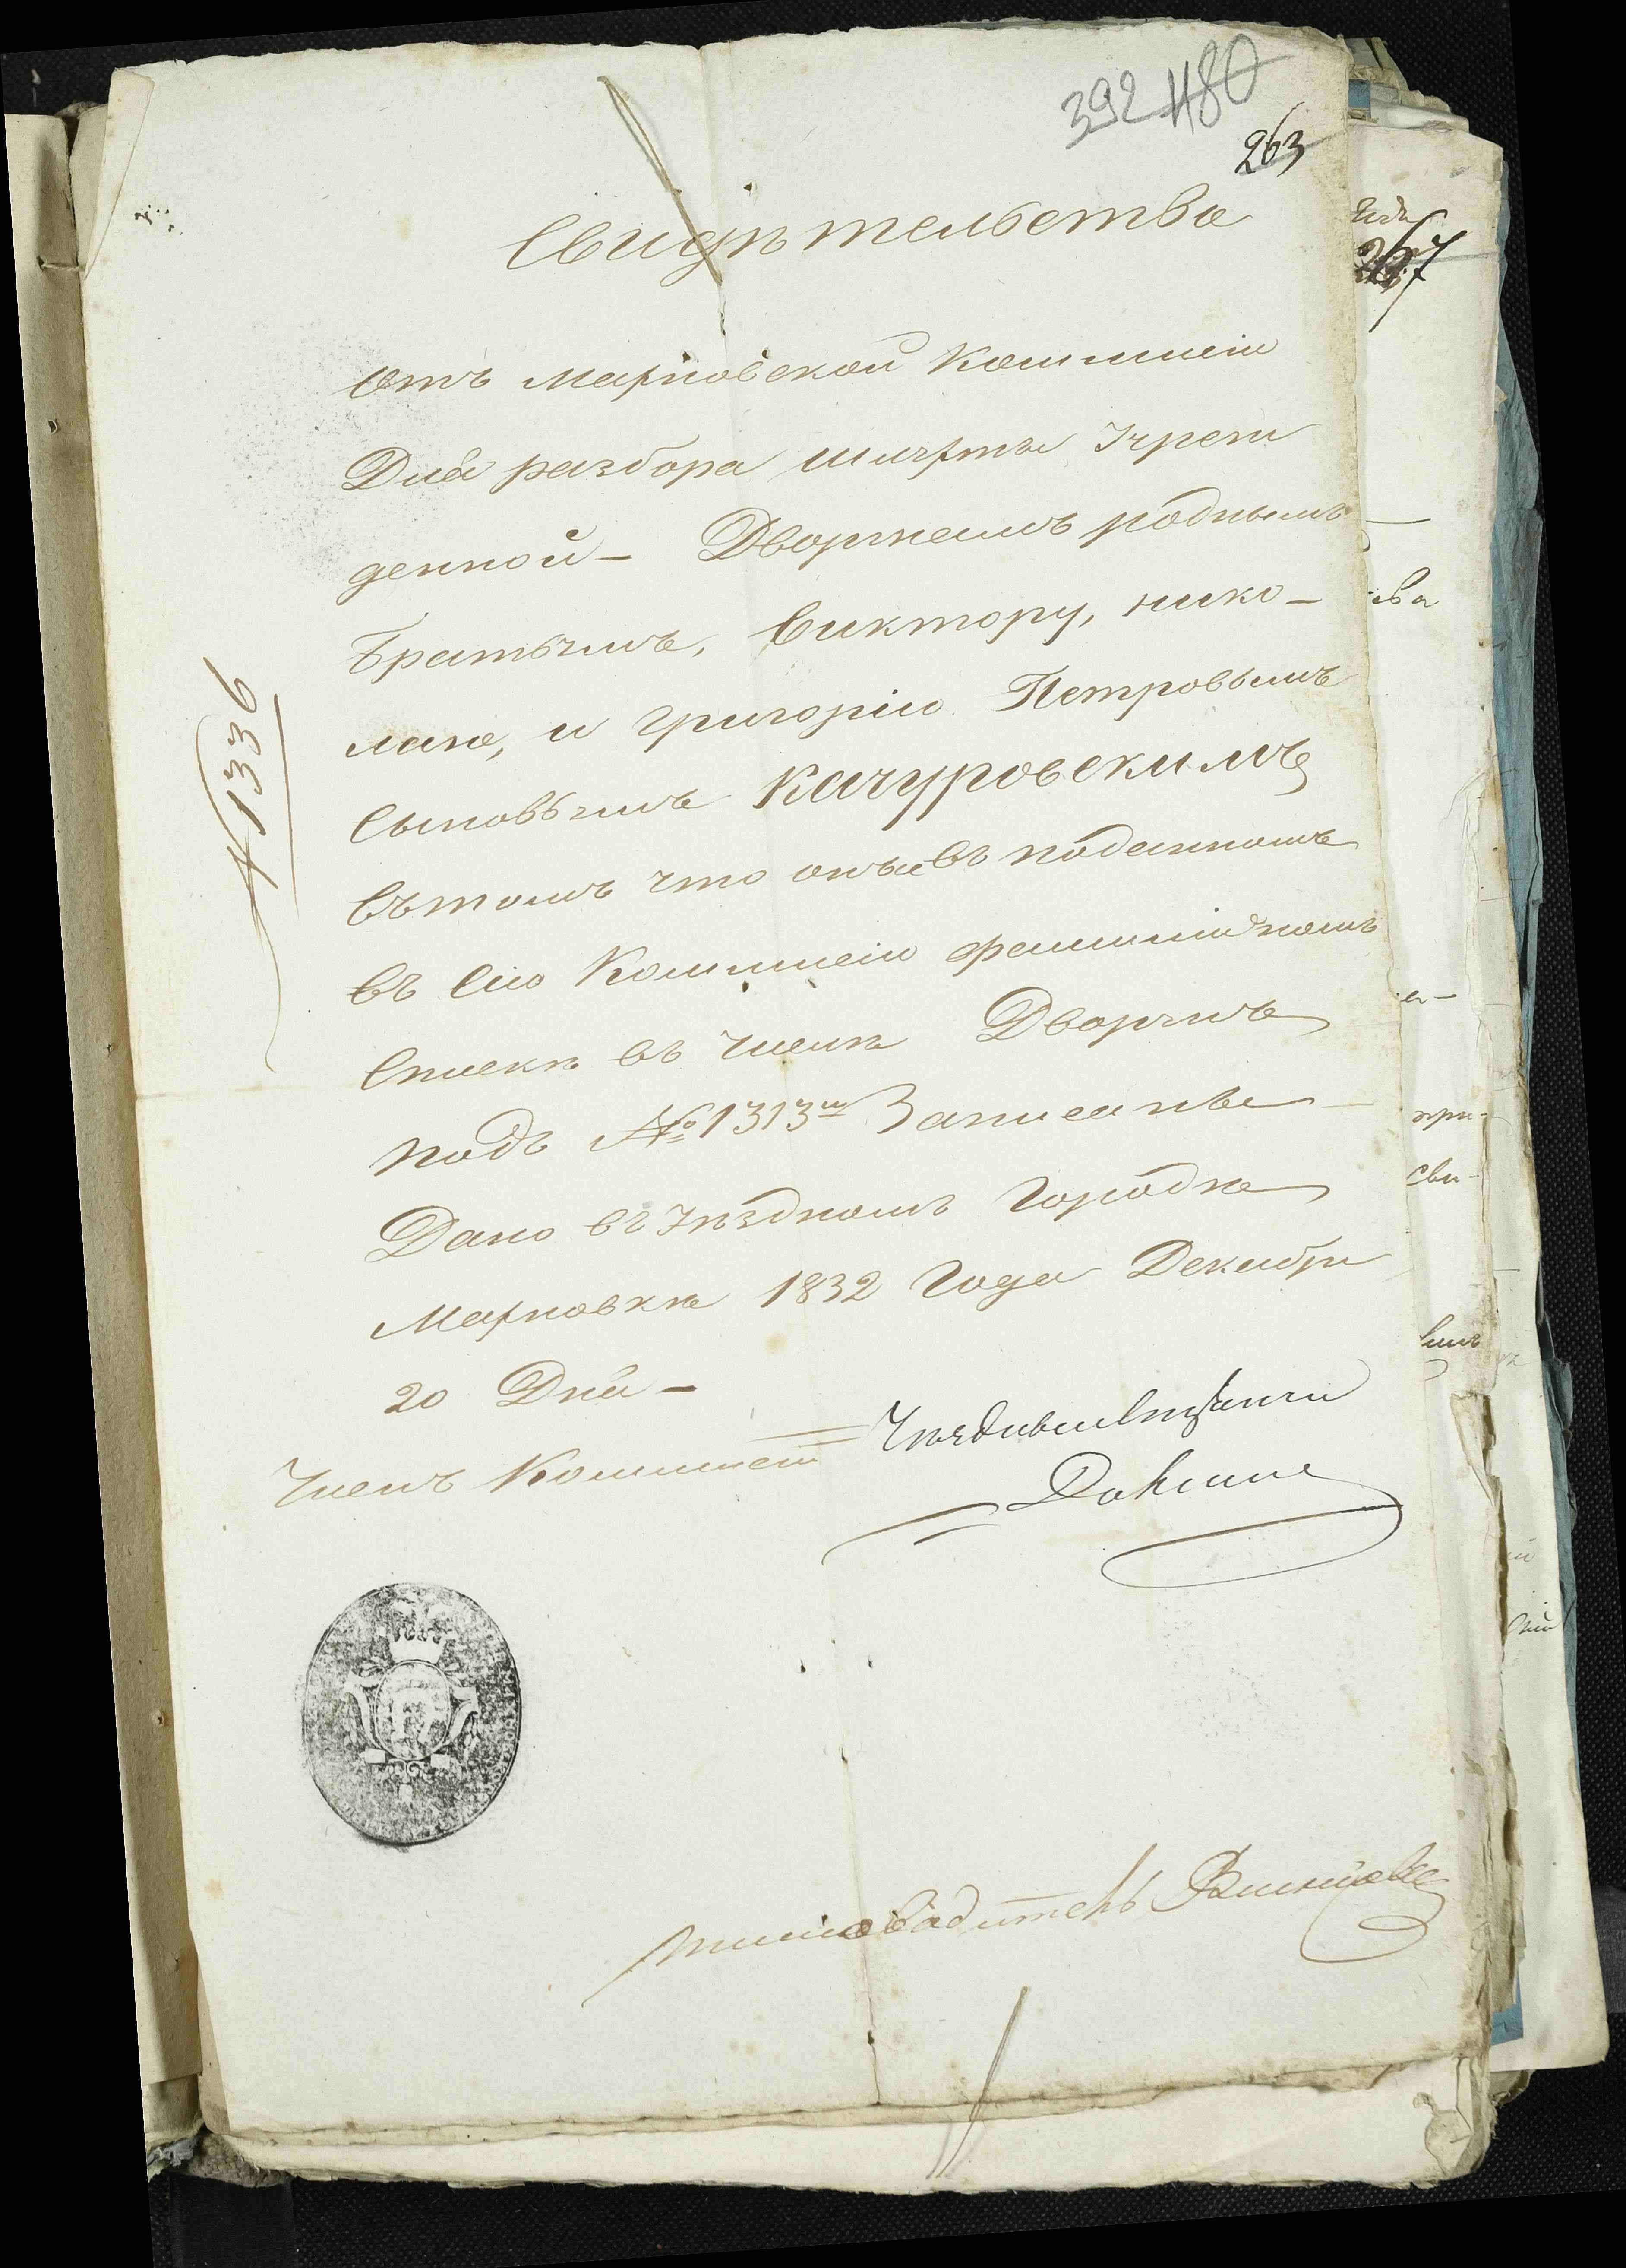 392 480
263
Свидѣтельство
Отъ Махновской Коммисіи
Для разбора шляхты Учреж
денной – Дворянамъ роднымъ
Братьямъ, Виктору, Нико –
лаю, и Григорію Петровымъ
Сыновьямъ Качуровскимъ
Въ томъ что оные въ поданномъ
въ Сію Коммисію фамилійномъ
Спискѣ въ числѣ Дворянъ
подъ № 1313 м Записаны
Дано въ Уѣздномъ Городкѣ
Махновкѣ 1832 Года Декабря
20 Дня –
Членъ Коммисіи Уѣздный
Письмоводитель
1336